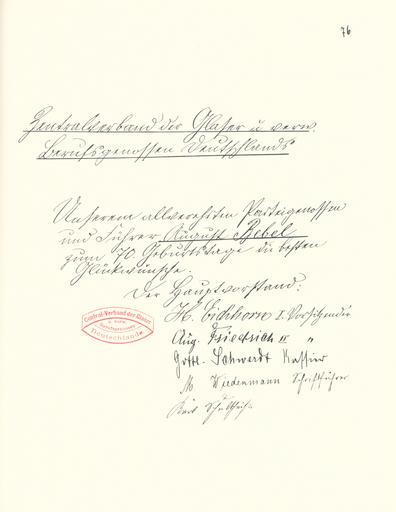 76
Zentralverband der Glaser u. verw.
Berufsgenossen Deutschlands
Unserem allverehrten Parteigenossen
und Führer August Bebel
zum 70. Geburtstage die besten
Glückwünsche.
Der Hauptvorstand:
H. Eichhorn I. Vorsitzender
Aug. Friedrich II "
Gottl. Schwerdt Kassier
M Wiedenmann Schriftführer
Central-Verband der Glaser
u. verw.
Berufsgenossen
Deutschlands